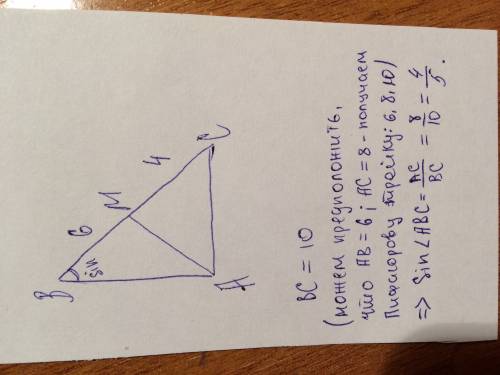 B
sin
6
M
4
C
A
BC = 10
(можем предположить,
что AB = 6 ; AC = 8 - получаем
Пифагорову тройку: 6, 8, 10)
=> sin∠ABC = AC/BC = 8/10 = 4/5.